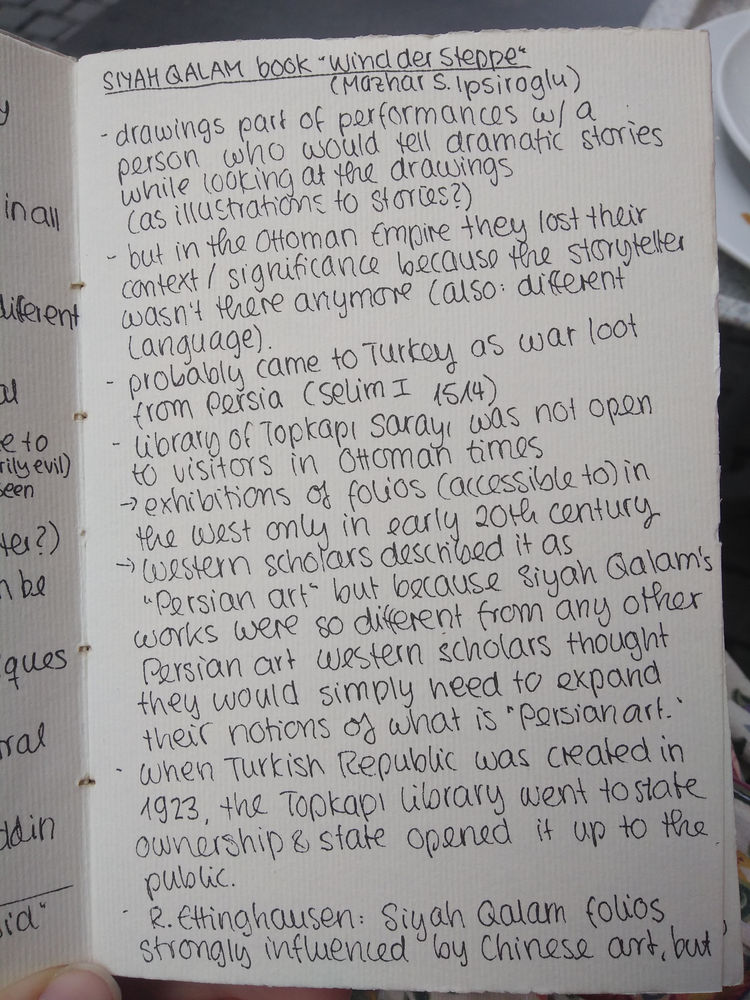 y
in all
different
al
e to
rily evil)
seen
ter?)
n be
iques
ral
ddin
id"
SIYAH QALAM book "Wind der Steppe"
(Mazhar S. Ipsiroglu)
- drawings part of performances w/ a
person who would tell dramatic stories
while looking at the drawings
(as illustrations to stories?)
- but in the Ottoman Empire they lost their
context / significance because the storyteller
wasn't there anymore (also: different
language).
- probably came to Turkey as war loot
from Persia (Selim I 1514)
- library of Topkapı Sarayı was not open
to visitors in Ottoman times
→ exhibitions of folios (accessible to) in
the west only in early 20th century
→ western scholars described it as
"Persian art" but because Siyah Qalam's
works were so different from any other
Persian art western scholars thought
they would simply need to expand
their notions of what is "Persian art."
- when Turkish Republic was created in
1923, the Topkapı library went to state
ownership & state opened it up to the
public.
- R. Ettinghausen: Siyah Qalam folios
strongly influenced by Chinese art, but